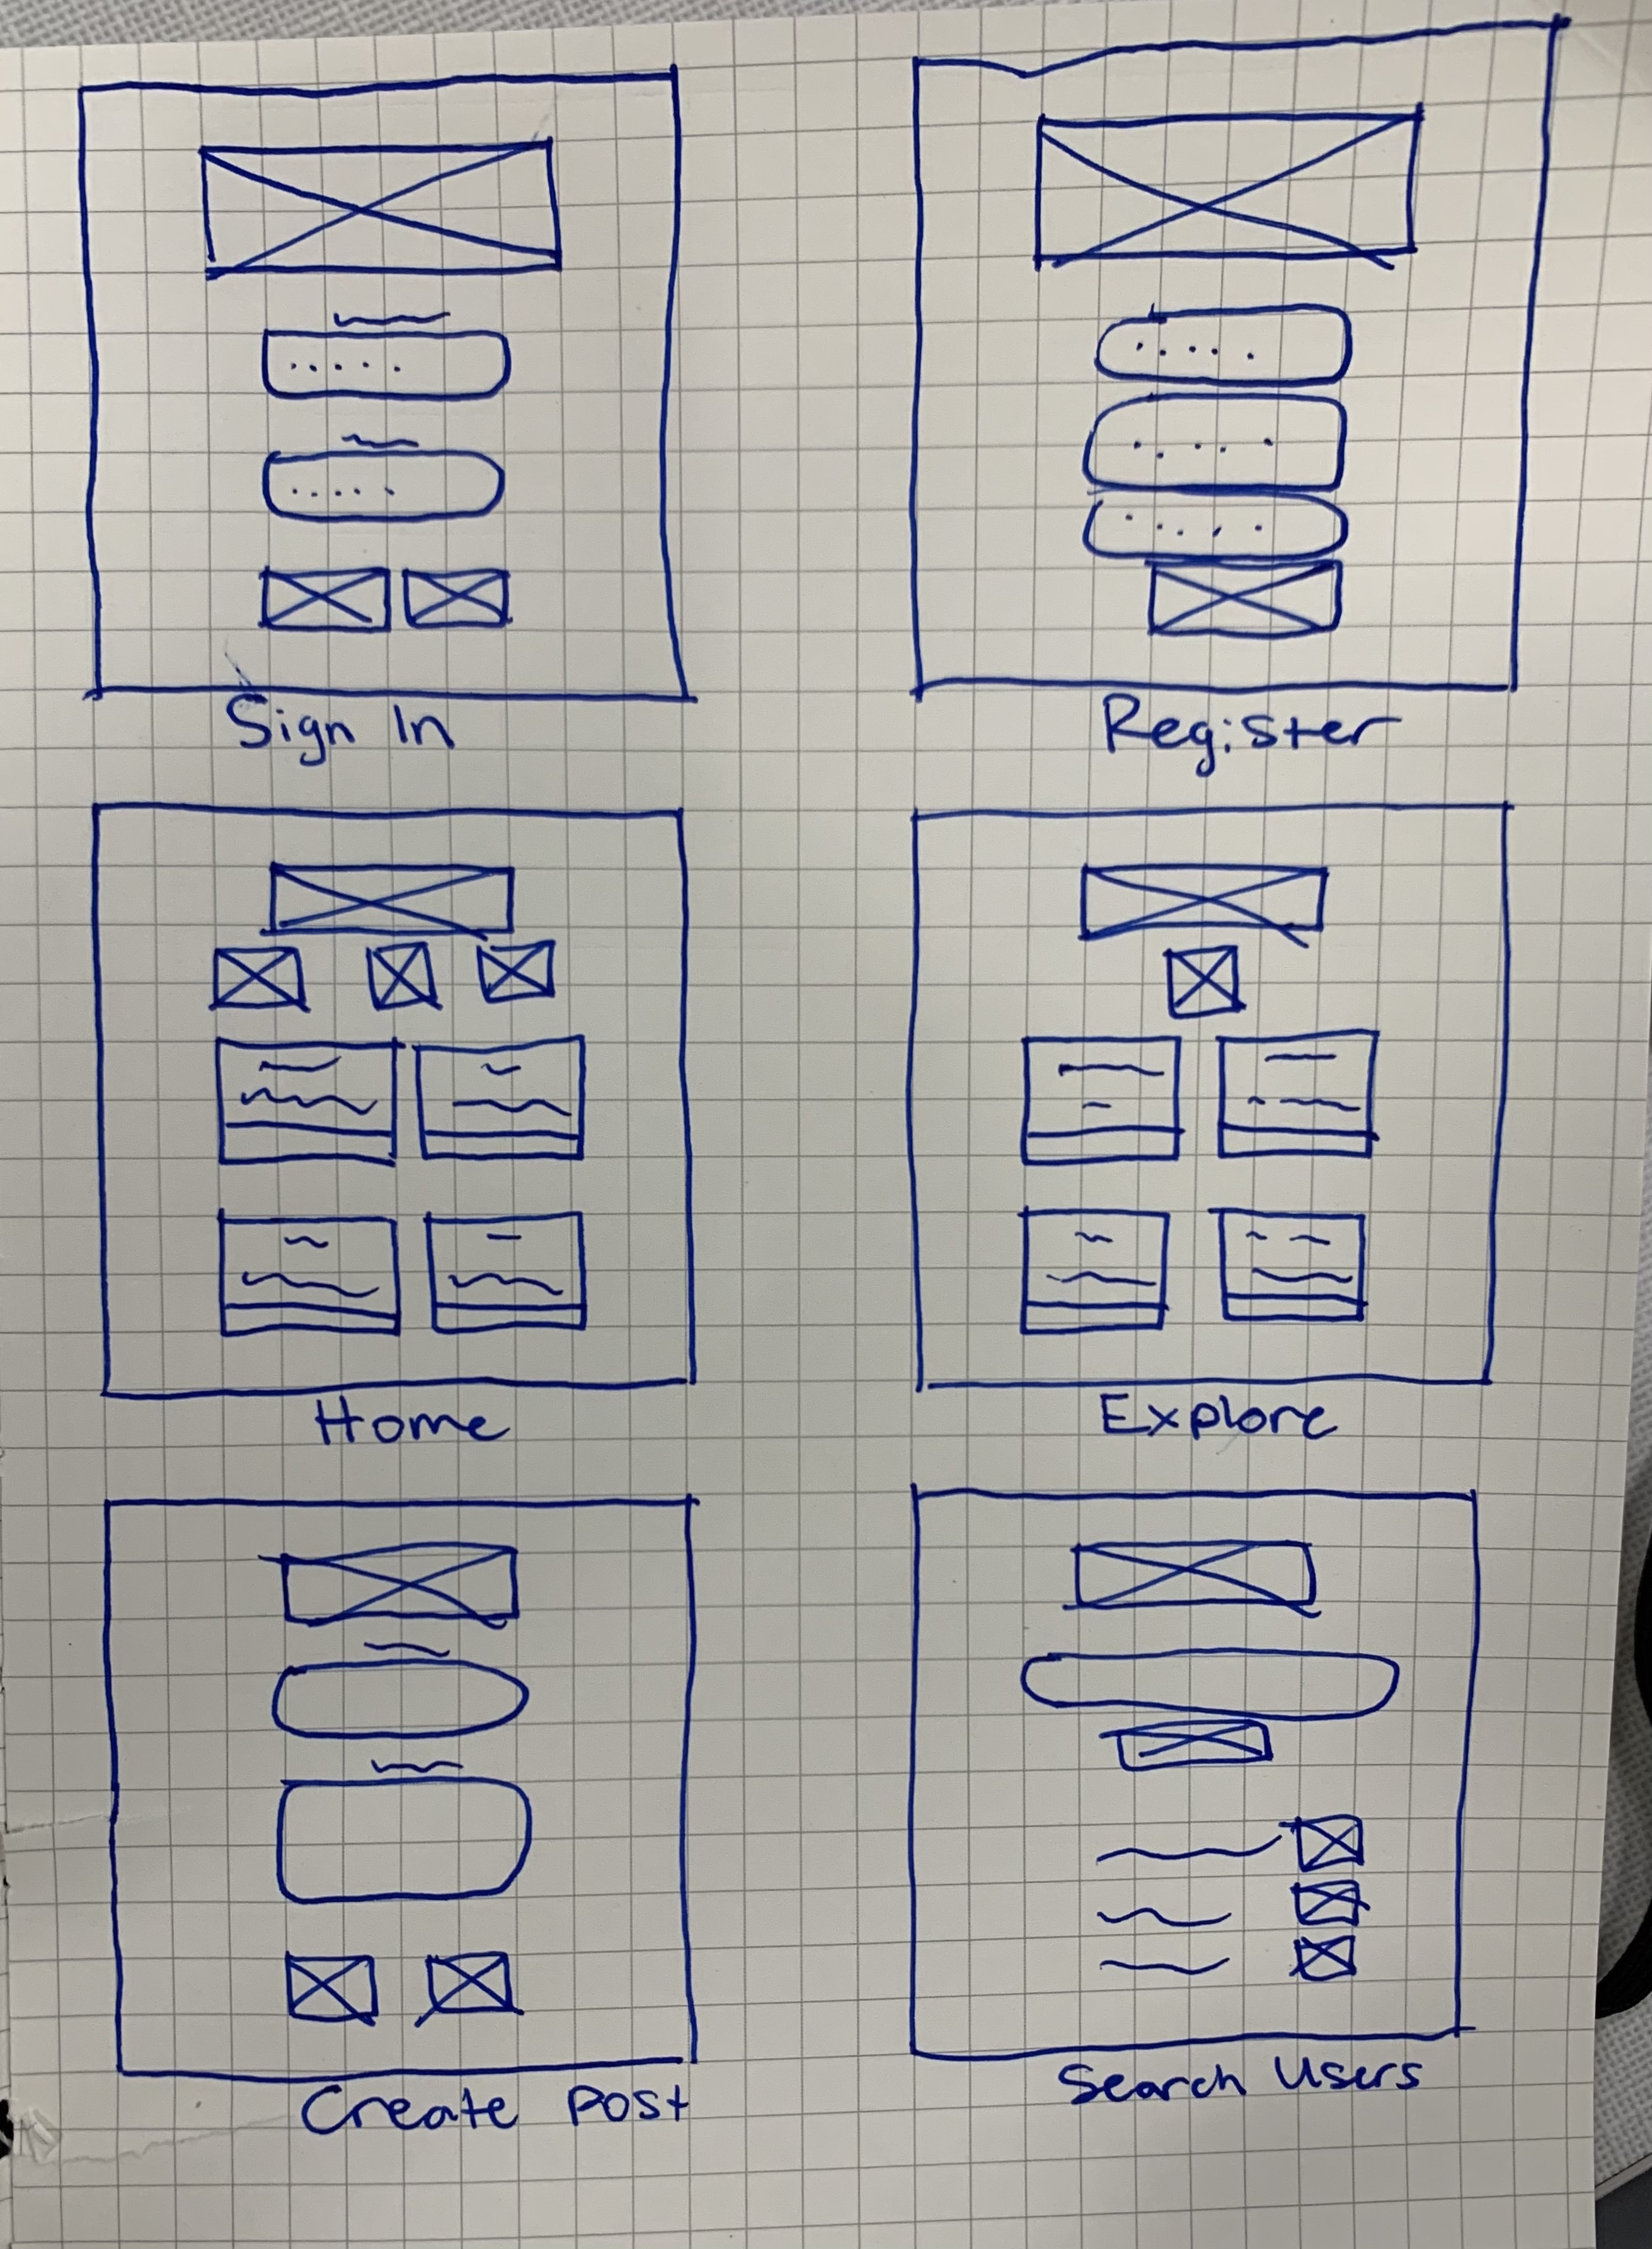 Sign In
Register
Home
Explore
Create Post
Search Users